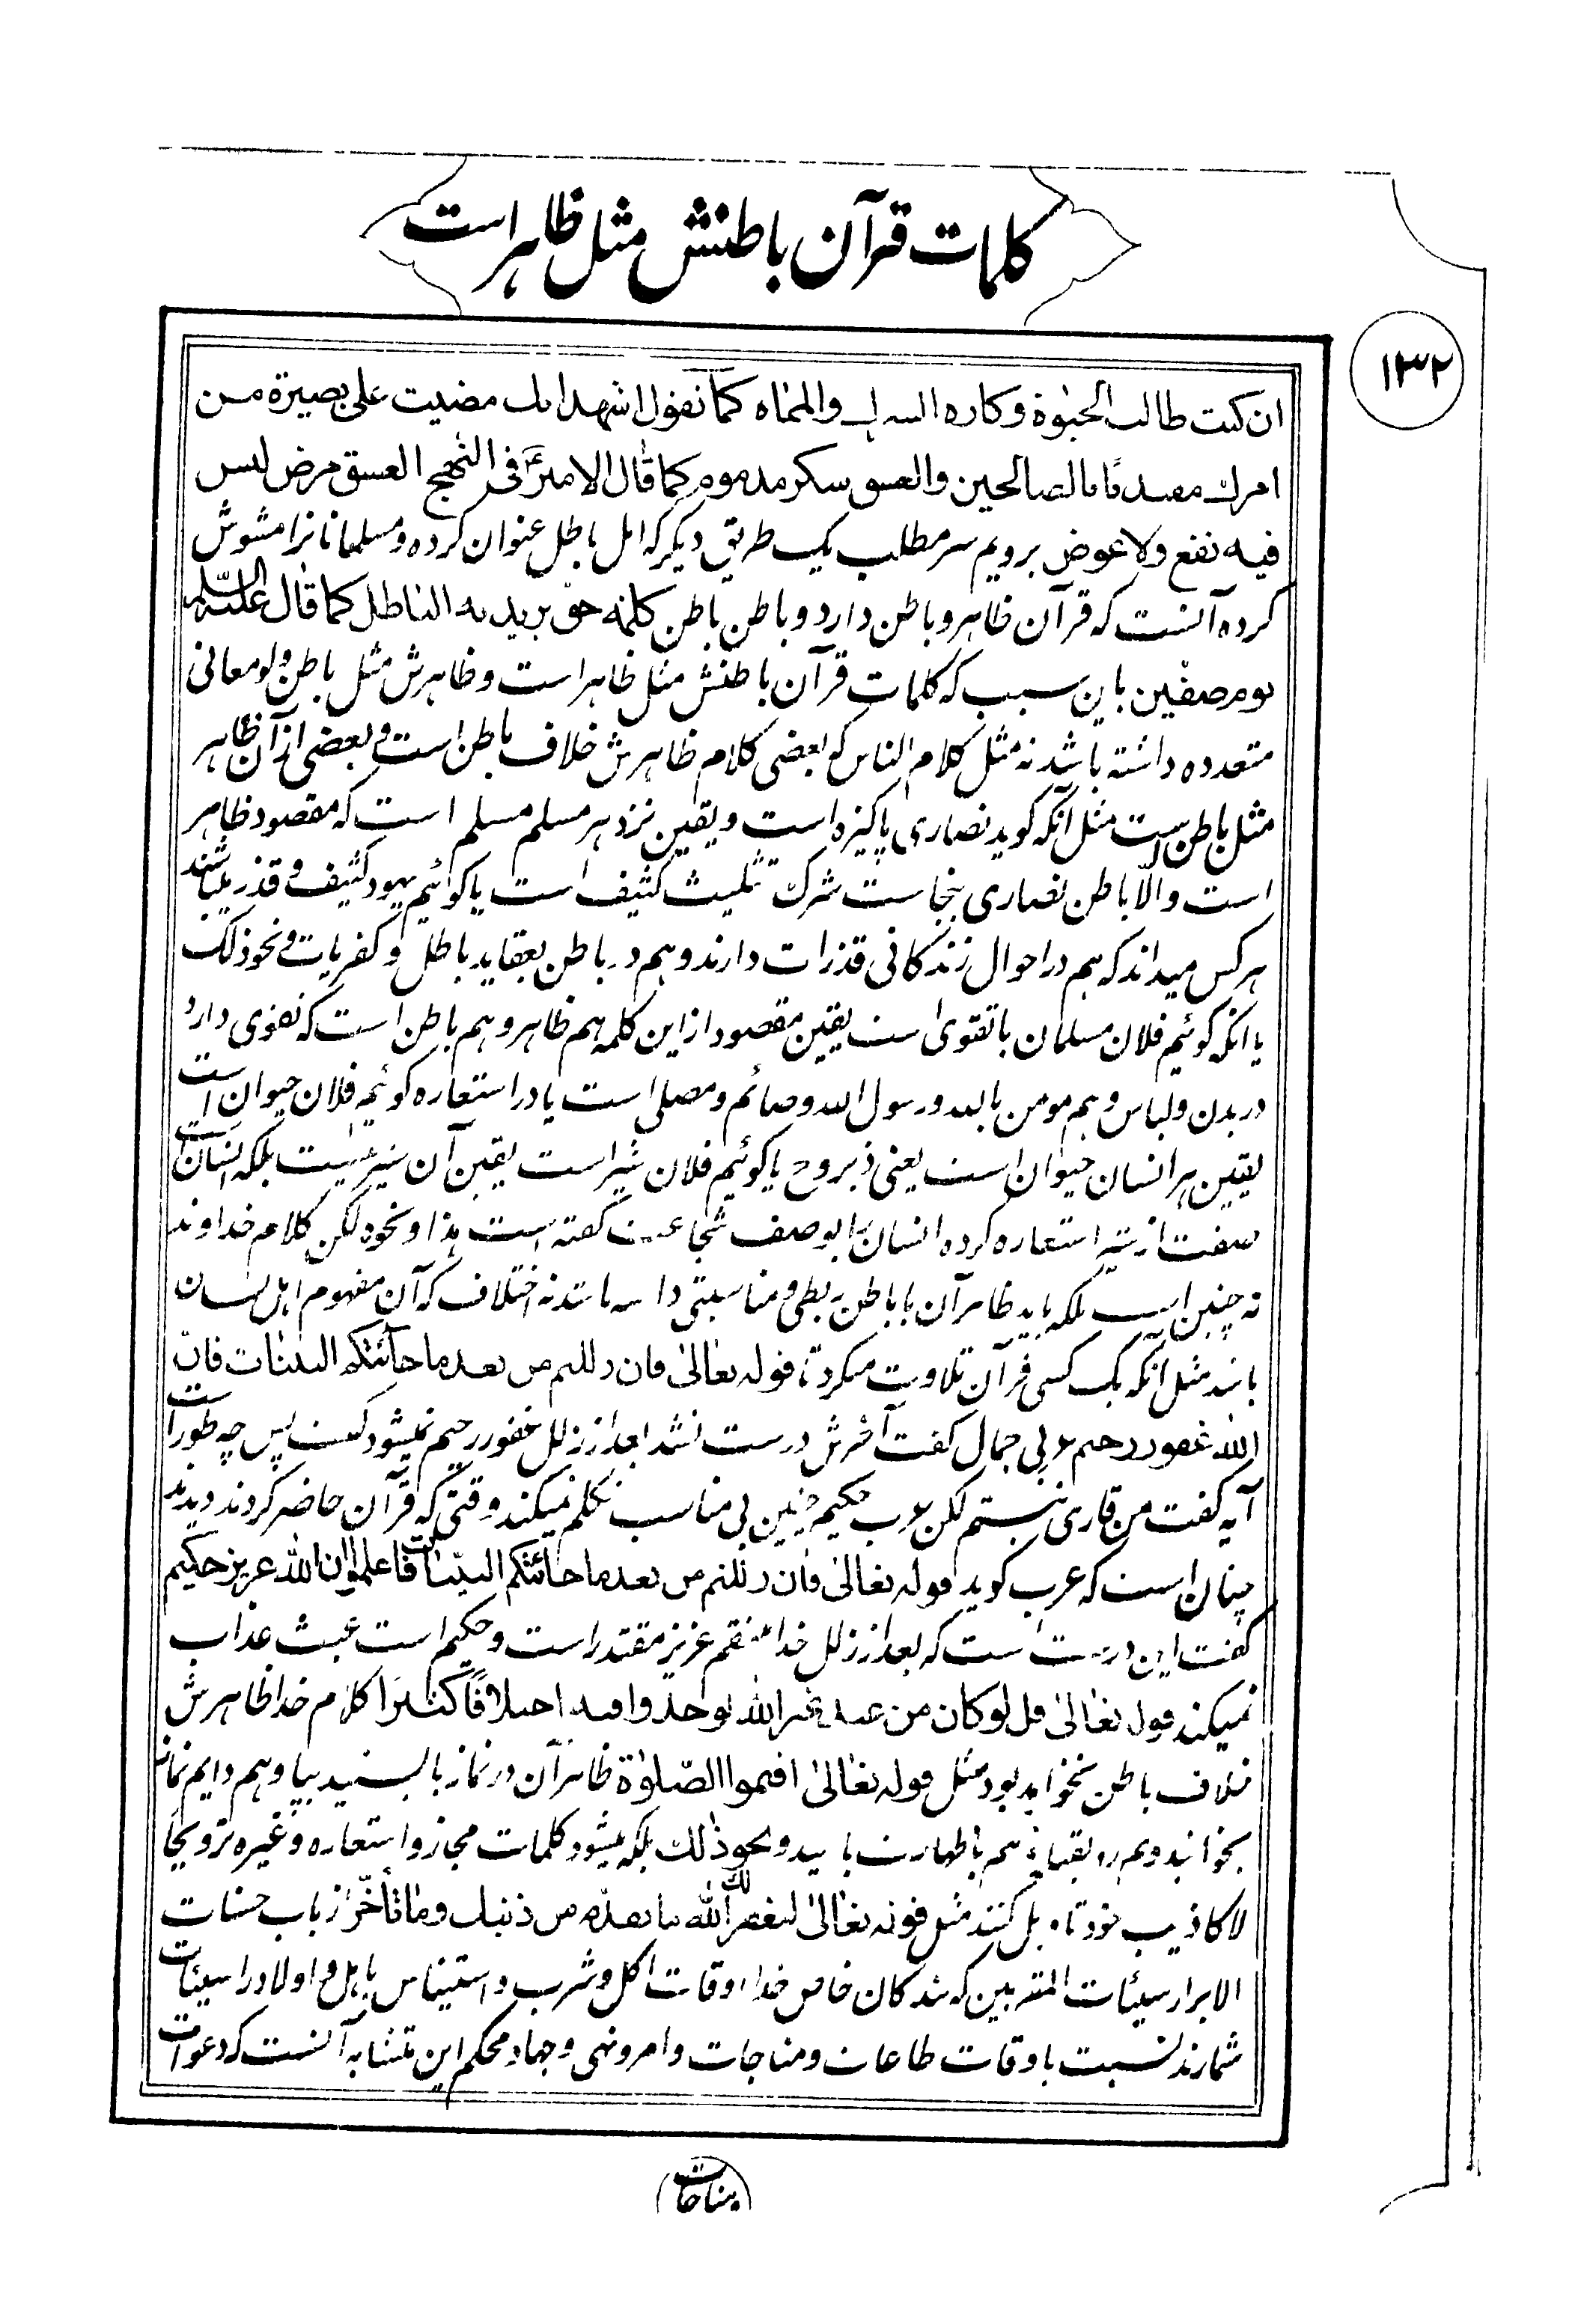 کلمات قرآن باطنش مثل ظاهر است
۱۳۲
ان کنت طالب الحیوة و کاره و المماة کما نقول اشهد انک مضیت علی بصیرة من
امرک مقتدیا بالصالحین والعشق سکر مذموم کما قال الامیرؑ فی النهج العشق مرض لیس
فیه نفع ولا عوض برویم سر مطلب یک طریق دیگر که اهل باطل عنوان کرده و مسلمانانرا مشوش
کرده آنست که قرآن ظاهر و باطن دارد و باطن باطن کلمة حق یرید به الباطل کما قال علیه السلم
یوم صفین باین سبب که کلمات قرآن باطنش مثل ظاهر است و ظاهرش مثل باطن ولو معانی
متعدده داشته باشد نه مثل کلام الناس که بعضی کلام ظاهرش خلاف باطن است و بعضی از آن ظاهر
مثل باطن است مثل آنکه کوید نصاری پاکیزه است و یقین نزد هر مسلم مسلم است که مقصود ظاهر
است والّا باطن نصاری بنجاست شرک تثلیث کثیف است یا کوئیم یهود کثیف و قذر میباشند
هر کس میداند که هم در احوال زندکانی قذرات دارند و هم در باطن بعقاید باطل و کفریات و نحو ذلک
یا انکه کوئیم فلان مسلمان با تقوی است یقین مقصود از این کلمه هم ظاهر و هم باطن است که تقوی دارد
در بدن و لباس و هم مومن بالله و رسول الله و صائم و مصلی است یا در استعاره کوئیم فلان حیوان است
یقین هر انسان حیوان است یعنی ذیروح یا کوئیم فلان شیر است یقین آن شیر نیست بلکه انسان است
صفت از شیر استعاره کرده انسان را بوصف شجاعت کفته است هذا و نحوه لکن کلام خداوند
نه چنین است بلکه باید ظاهر آن با باطن ربطی و مناسبتی داشته باشد نه اختلاف که آن مفهوم اهل لسان
باشد مثل آنکه یک کسی قرآن تلاوت میکرد تا قوله تعالی فان زللتم من بعد ما جائتکم البینات فانّ
الله غفور رحیم عربی جمال کفت آخرش درست نشد بعد از زلل غفور رحیم نمیشود کفت پس چه طور است
آیه کفت من قاری نیستم لکن عرب حکیم چنین بی مناسب تکلم نمیکند وقتی که قرآن حاضر کردند دیدند
چنان است که عرب کوید قوله تعالی فان زللتم من بعد ما جائتکم البیّنات فاعلموا ان الله عزیز حکیم
کفت این درست است که بعد از زلل خدا منتقم عزیز مقتدر است و حکیم است عبث عذاب
نمیکند قوله تعالی قل لو کان من عند غیر الله لوجدوا فیه اختلافا کثیرا کلام خدا ظاهرش
خلاف باطن نخواهد بود مثل قوله تعالی اقیموا الصّلوٰة ظاهر آن در نماز بایستید بپا و هم دایم نماز
بخوانید و هم رو بقبله و هم با طهارت باشید و نحو ذلک بلکه میشود کلمات مجاز و استعاره و غیره ترویجا
لاکاذیب خود تاویل کنند مثل قوله تعالی لیغفر لک الله ما تقدّم من ذنبک وما تأخّر از باب حسنات
الابرار سیئات المقربین که بندکان خاص خدا اوقات اکل و شرب و استیناس باهل و اولاد را سیئات
شمارند نسبت باوقات طاعات و مناجات و امر و نهی و جهاد محکم این متشابه آنست که دعوات